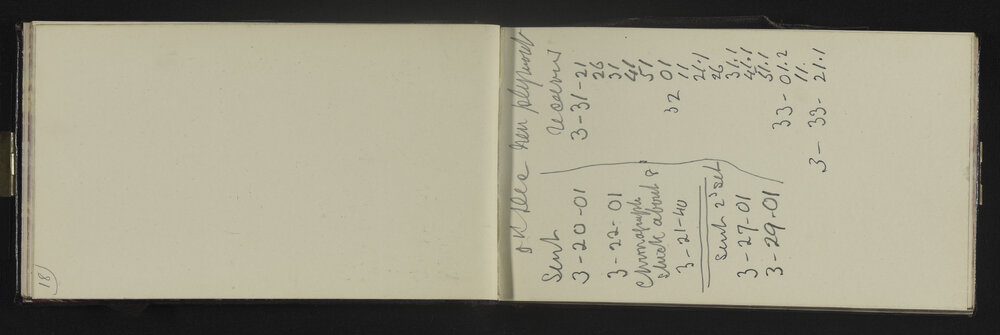 18
New plymouth
Sent
3-20-01
3-22-01
Chronograph
stuck about 8
3-21-40
Sent 2d set
3-27-01
3-29-01
3-31-21
26
31
41
51
32 01
11
21.1
26
31.1
41.1
51.1
33-01.2
11.
3-33-21.1